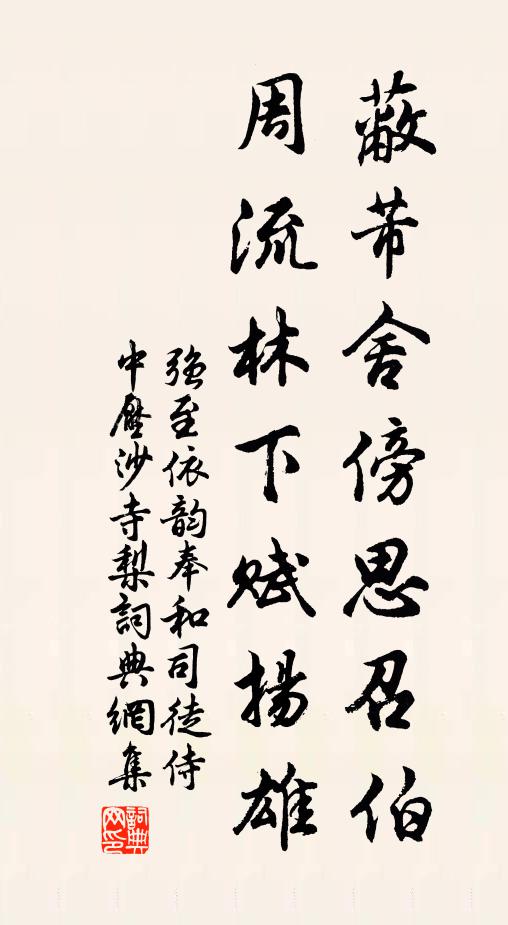 蔽芾舍傍思召伯
周流林下賦揚雄
強至依韵奉和司徒侍
中壓沙寺梨詞典網集
詞典
网印